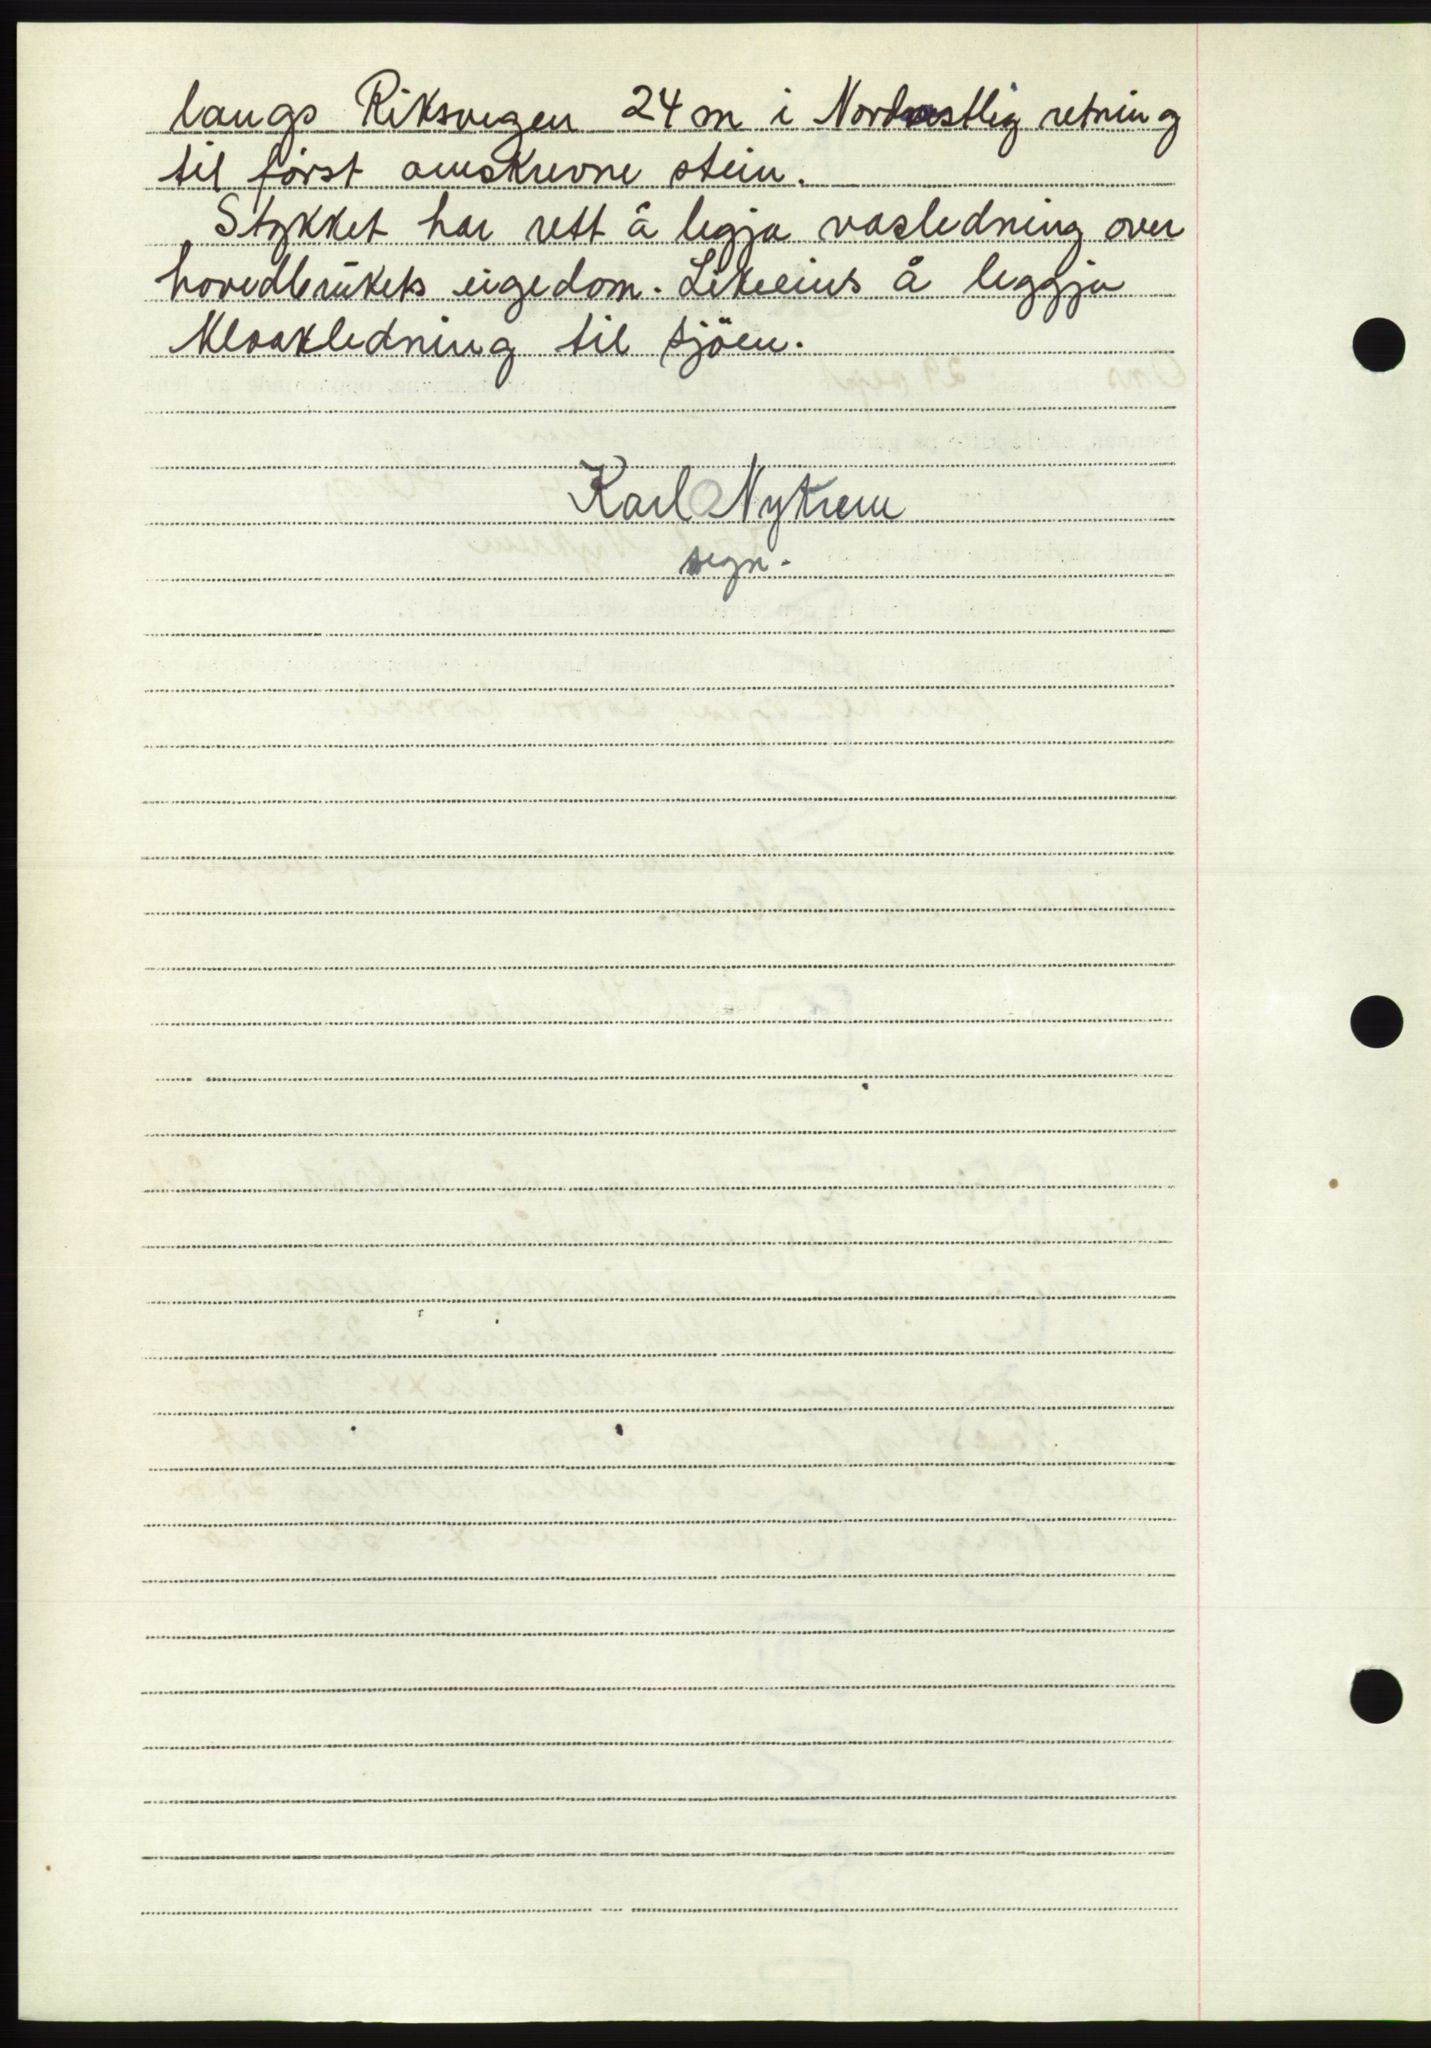 langs Riksvegen 24 m i Nordvestlig retning
til först omskrevne stein.
Stykket har rett å legja vasledning over
hovedbrukets eigedom. Likeeins å leggja
Kloakledning til sjöen.
Karl Nykrem
segn.